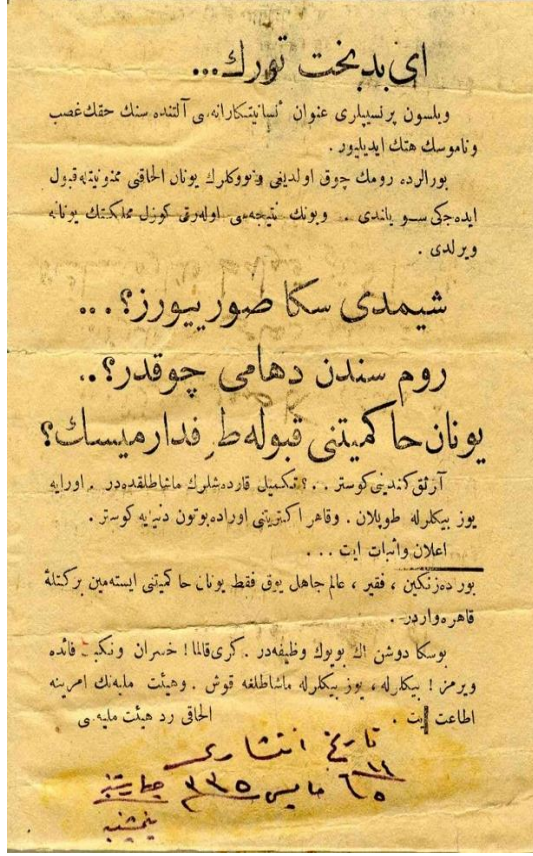 ای بدبخت تورك...
ویلسون پرنسیپلری عنوان انسانیتكارانه‌سی آلتنده سنك حقك غصب
و ناموسك هتك ایدیلیور .
بورالرده رومك چوق اولدیغی و تورکلرك یونان الحاقنی ممنونیتله قبول
ایده‌جكی سویلندی . وبونك نتیجه‌سی اوله‌رق كوزل مملكتك یونانه
ویرلدی .
شیمدی سكا صورییورز؟...
روم سندن دهامی چوقدر؟..
یونان حاكمیتنی قبوله طرفدارمیسك؟
آرتق كندینی كوستر ..؟ تكمیل قارده‌شلرك ماشاطلقده‌در . اورایه
یوز بیكلرله طوپلان . و قاهر اكثریتنی اوراده بوتون دنیایه كوستر .
اعلان و اثبات ایت ...
بوراده زنكین ، فقیر ، عالم جاهل یوق فقط یونان حاكمیتنی ایسته‌مین بر كتلهٔ
قاهره واردر .
بو سكا دوشن اڭ بویوك وظیفه‌در . كری قالما! خسران و نكبت فائده
ویرمز ! بیكلرله ، یوز بیكلرله ماشاطلغه قوش . و هیئت ملیه‌نك امرینه
اطاعت ایت . الحاقی رد هیئت ملیه‌سی
تاریخ انتشاری
۱۴/۵ مایس ۳۳۵ چهارشنبه
پنجشنبه